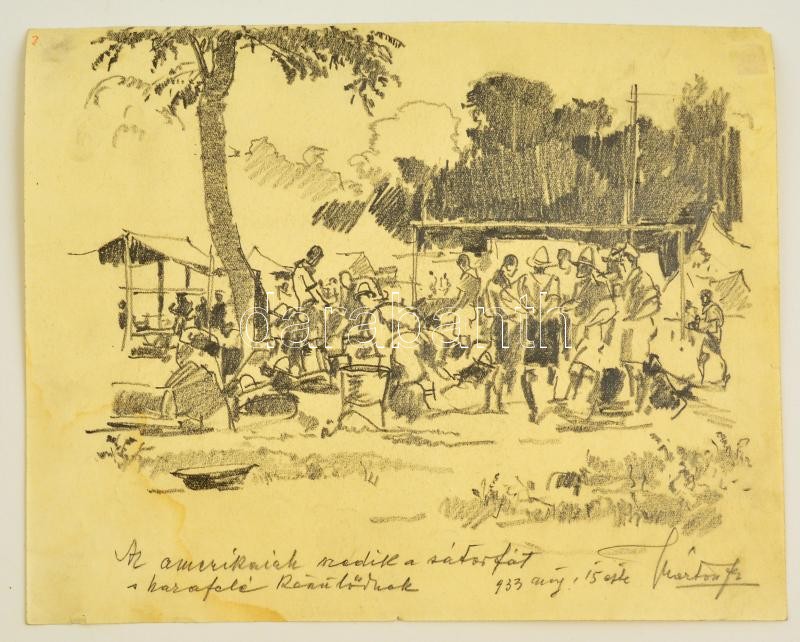 darabanth
Az amerikaiak szedik a sátorfát
s hazafelé készülődnek 933 aug. 15 este Márton F